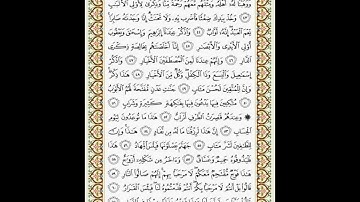 وَوَهَبْنَا لَهُۥٓ أَهْلَهُۥ وَمِثْلَهُم مَّعَهُمْ رَحْمَةً مِّنَّا وَذِكْرَىٰ لِأُو۟لِى ٱلْأَلْبَٰبِ
٤٣ وَخُذْ بِيَدِكَ ضِغْثًا فَٱضْرِب بِّهِۦ وَلَا تَحْنَثْ إِنَّا وَجَدْنَٰهُ صَابِرًا
نِّعْمَ ٱلْعَبْدُ إِنَّهُۥٓ أَوَّابٌ ٤٤ وَٱذْكُرْ عِبَٰدَنَآ إِبْرَٰهِيمَ وَإِسْحَٰقَ وَيَعْقُوبَ
أُو۟لِى ٱلْأَيْدِى وَٱلْأَبْصَٰرِ ٤٥ إِنَّآ أَخْلَصْنَٰهُم بِخَالِصَةٍ ذِكْرَى
ٱلدَّارِ ٤٦ وَإِنَّهُمْ عِندَنَا لَمِنَ ٱلْمُصْطَفَيْنَ ٱلْأَخْيَارِ ٤٧ وَٱذْكُرْ
إِسْمَٰعِيلَ وَٱلْيَسَعَ وَذَا ٱلْكِفْلِ وَكُلٌّ مِّنَ ٱلْأَخْيَارِ ٤٨ هَٰذَا ذِكْرٌ
وَإِنَّ لِلْمُتَّقِينَ لَحُسْنَ مَـَٔابٍ ٤٩ جَنَّٰتِ عَدْنٍ مُّفَتَّحَةً لَّهُمُ ٱلْأَبْوَٰبُ
٥٠ مُتَّكِـِٔينَ فِيهَا يَدْعُونَ فِيهَا بِفَٰكِهَةٍ كَثِيرَةٍ وَشَرَابٍ ٥١
۞ وَعِندَهُمْ قَٰصِرَٰتُ ٱلطَّرْفِ أَتْرَابٌ ٥٢ هَٰذَا مَا تُوعَدُونَ لِيَوْمِ
ٱلْحِسَابِ ٥٣ إِنَّ هَٰذَا لَرِزْقُنَا مَا لَهُۥ مِن نَّفَادٍ ٥٤ هَٰذَا وَإِنَّ
لِلطَّٰغِينَ لَشَرَّ مَـَٔابٍ ٥٥ جَهَنَّمَ يَصْلَوْنَهَا فَبِئْسَ ٱلْمِهَادُ ٥٦ هَٰذَا
فَلْيَذُوقُوهُ حَمِيمٌ وَغَسَّاقٌ ٥٧ وَءَاخَرُ مِن شَكْلِهِۦٓ أَزْوَٰجٌ ٥٨
هَٰذَا فَوْجٌ مُّقْتَحِمٌ مَّعَكُمْ لَا مَرْحَبًۢا بِهِمْ إِنَّهُمْ صَالُوا۟ ٱلنَّارِ ٥٩
قَالُوا۟ بَلْ أَنتُمْ لَا مَرْحَبًۢا بِكُمْ أَنتُمْ قَدَّمْتُمُوهُ لَنَا فَبِئْسَ ٱلْقَرَارُ